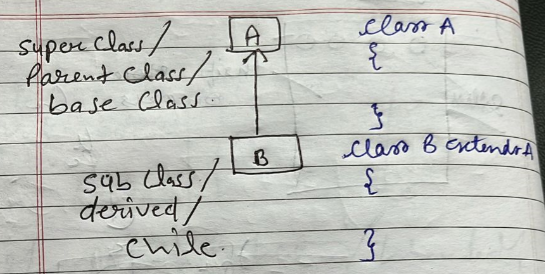 super class/
Parent Class/
base Class.
A
B
sub class/
derived/
chile.
class A
{
}
class B extends A
{
}